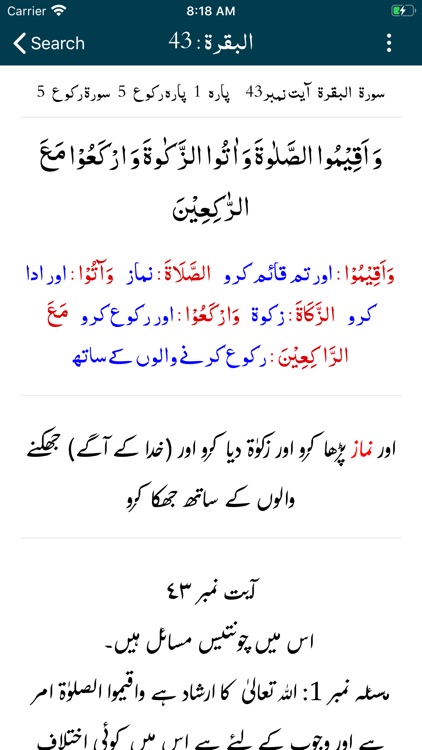 Carrier 8:18 AM
Search البقرة : 43
سورة البقرة آیت نمبر43 پارہ 1 پارہ رکوع 5 سورۃ رکوع 5
وَاَقِيْمُوا الصَّلٰوةَ وَاٰتُوا الزَّكٰوةَ وَارْكَعُوْا مَعَ
الرّٰكِعِيْنَ
وَاَقِيْمُوْا : اور تم قائم کرو الصَّلَاةَ : نماز وَآتُوْا : اور ادا
کرو الزَّکَاةَ : زکوۃ وَارْکَعُوْا : اور رکوع کرو مَعَ
الرَّاکِعِیْنَ : رکوع کرنے والوں کے ساتھ
اور نماز پڑھا کرو اور زکوٰۃ دیا کرو اور (خدا کے آگے) جھکنے
والوں کے ساتھ جھکا کرو
آیت نمبر ٤٣
اس میں چونتیس مسائل ہیں۔
مسئلہ نمبر 1: اللہ تعالیٰ کا ارشاد ہے واقیموا الصلوٰۃ امر
ہے اور وجوب کے لئے ہے اس میں کوئی اختلاف